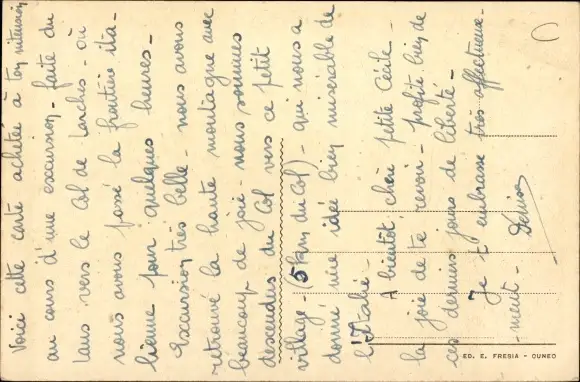 Voici cette carte achetée à ton intention
au cours d'une excursion - faite du
Lans vers le Col de Larches - où
nous avons passé la frontière ita-
lienne pour quelques heures -
Excursion très belle - nous avons
retrouvé la haute montagne avec
beaucoup de joie - nous sommes
descendus du Col vers ce petit
village - (5 km du Col) - qui nous a
donné une idée bien misérable de
l'Italie -
A bientôt chère petite Cécile -
la joie de te revoir - profite bien de
ces derniers jours de liberté -
Je t'embrasse très affectueuse-
ment - Denise
ED. E. FRESIA - CUNEO